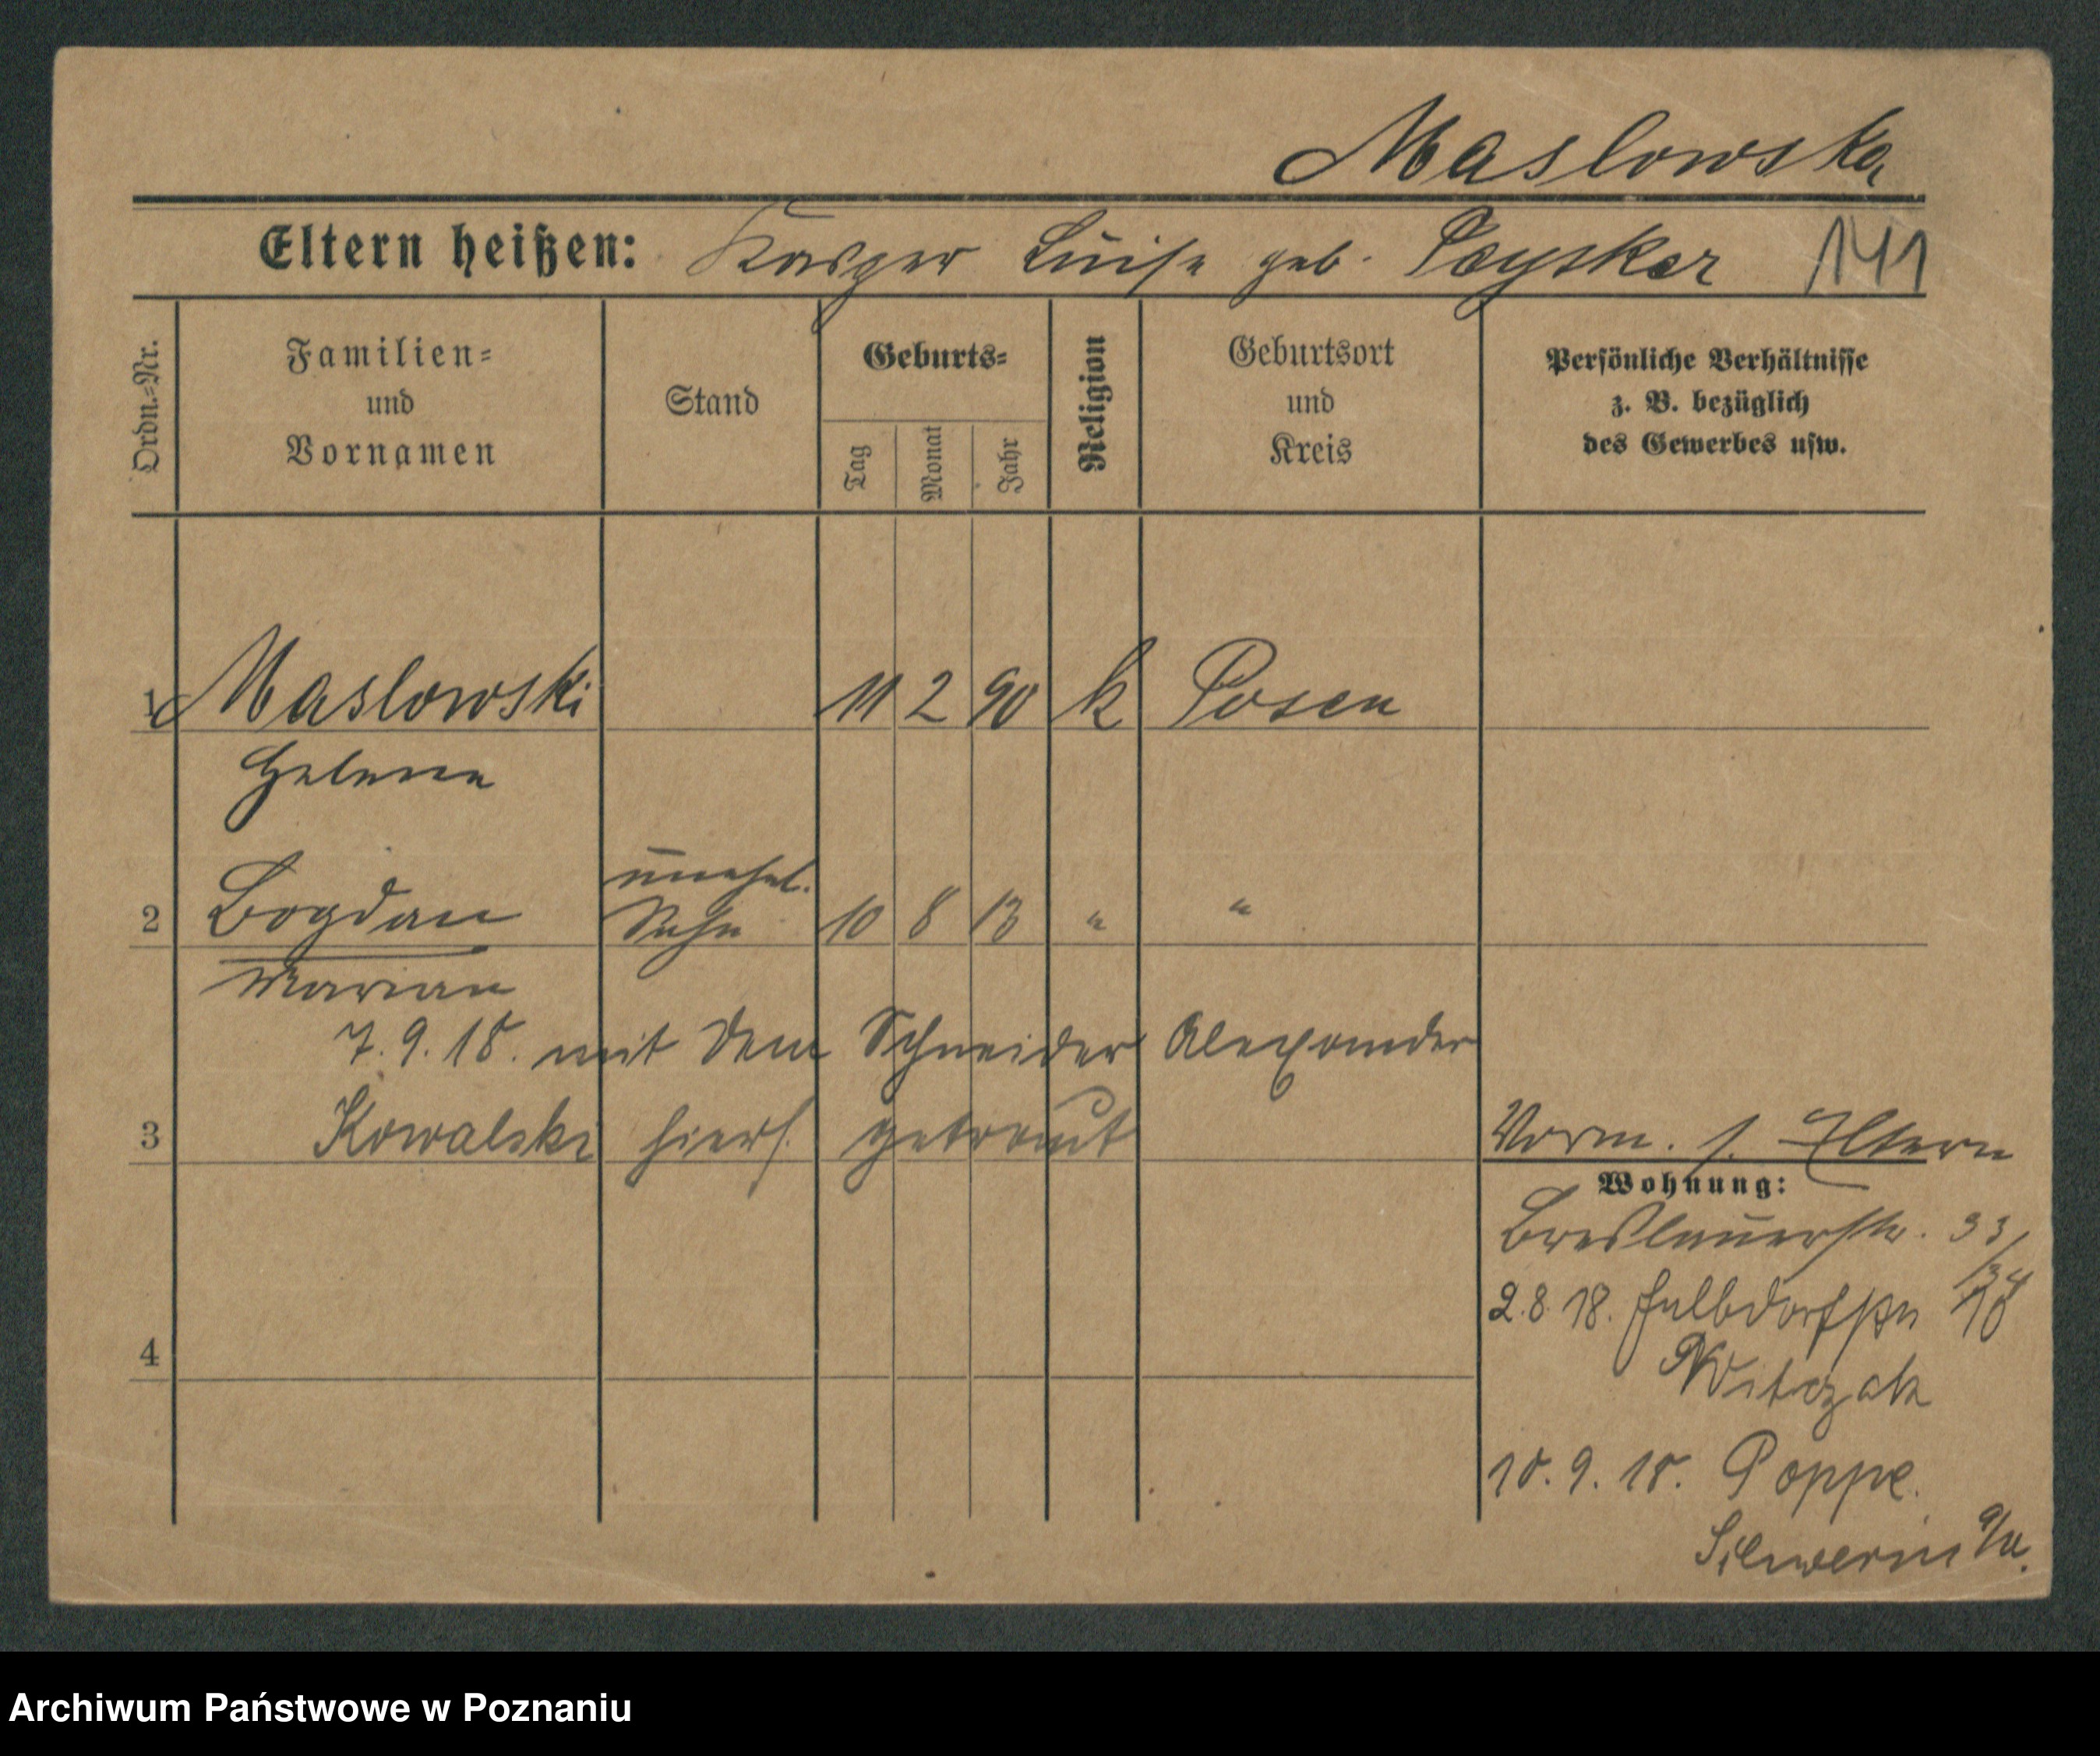 Maslowska
Eltern heißen: Kasper Luise geb. Peysker 141
Ordn.=Nr.
Familien=
und
Vornamen
Stand
Geburts=
Tag
Monat
Jahr
Religion
Geburtsort
und
Kreis
Persönliche Verhältnisse
z. B. bezüglich
des Gewerbes usw.
1 Maslowski 11 2 90 k Posen
Helene
unehel.
2 Bogdan Sohn 10 8 13 " "
Marian
7.9.18. mit dem Schneider Alexander
3 Kowalski hiers. getraut
Vorm. s. Eltern
Wohnung:
Breslauerstr. 33/
/34
2.8.18. 10
4
Witczak
10.9.18. Poppe.
Schwerin a/W.
Archiwum Państwowe w Poznaniu